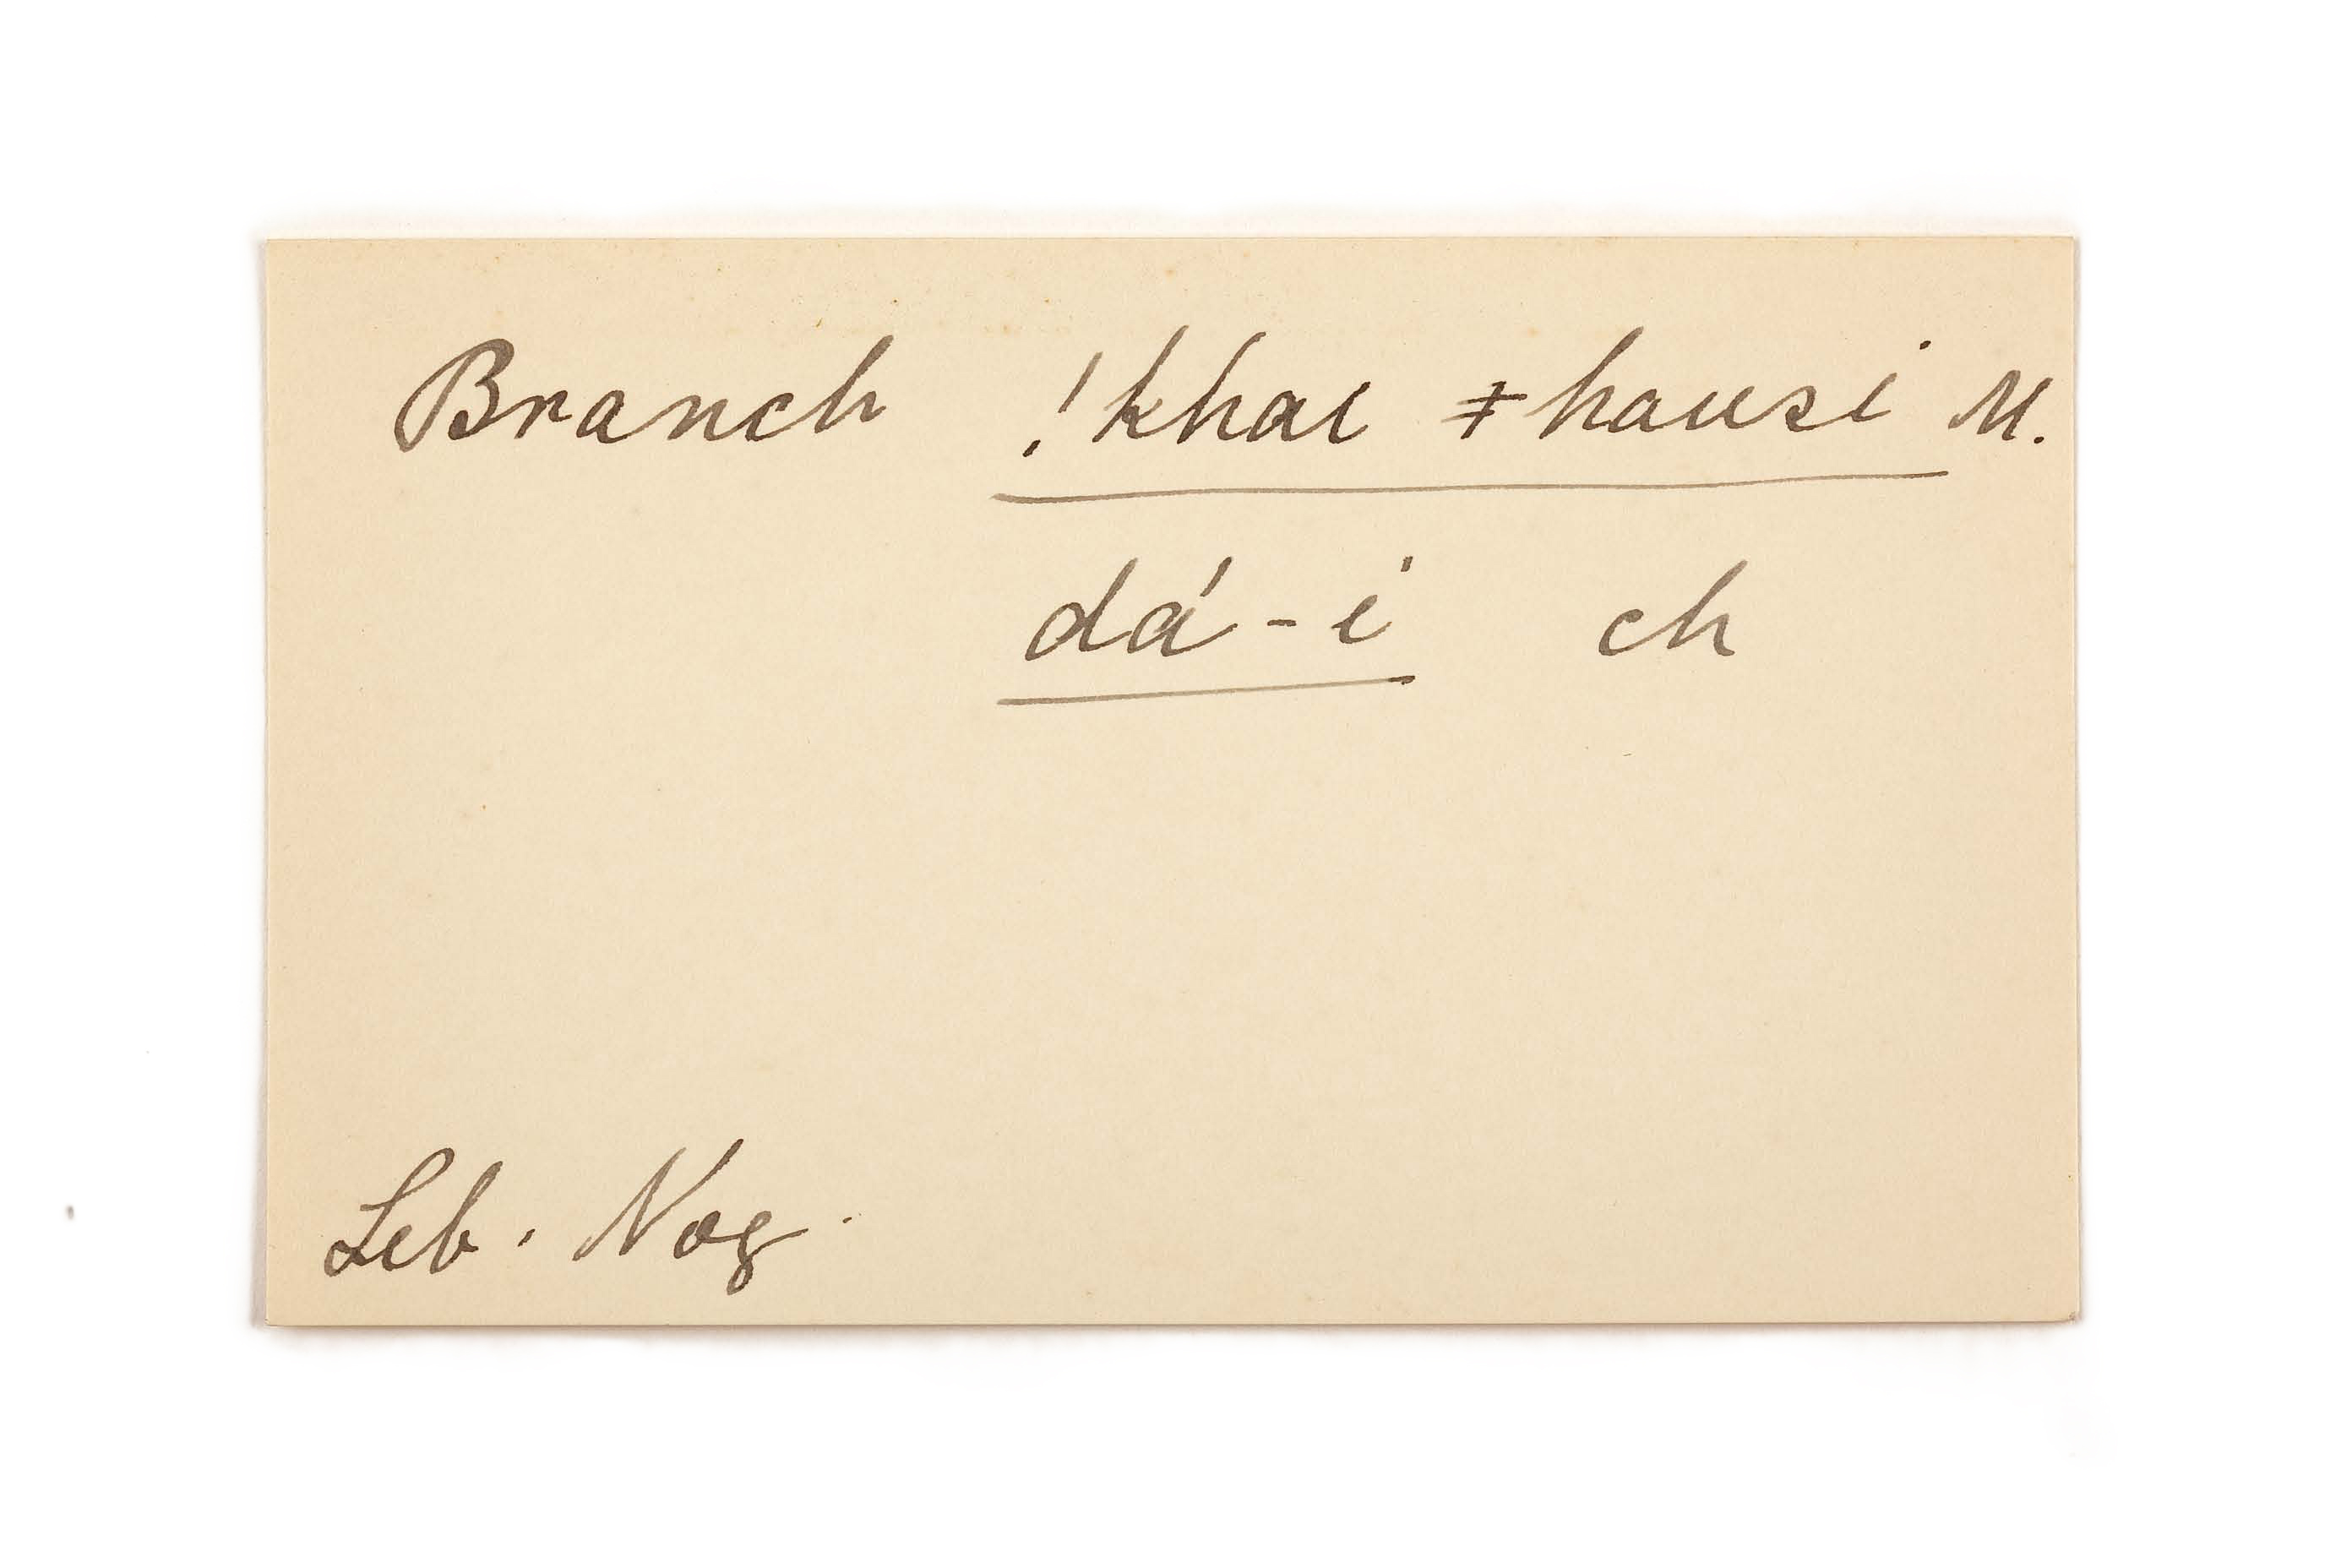 Branch !khai ǂhausi M.
dá-i ch
Leb. Nog.